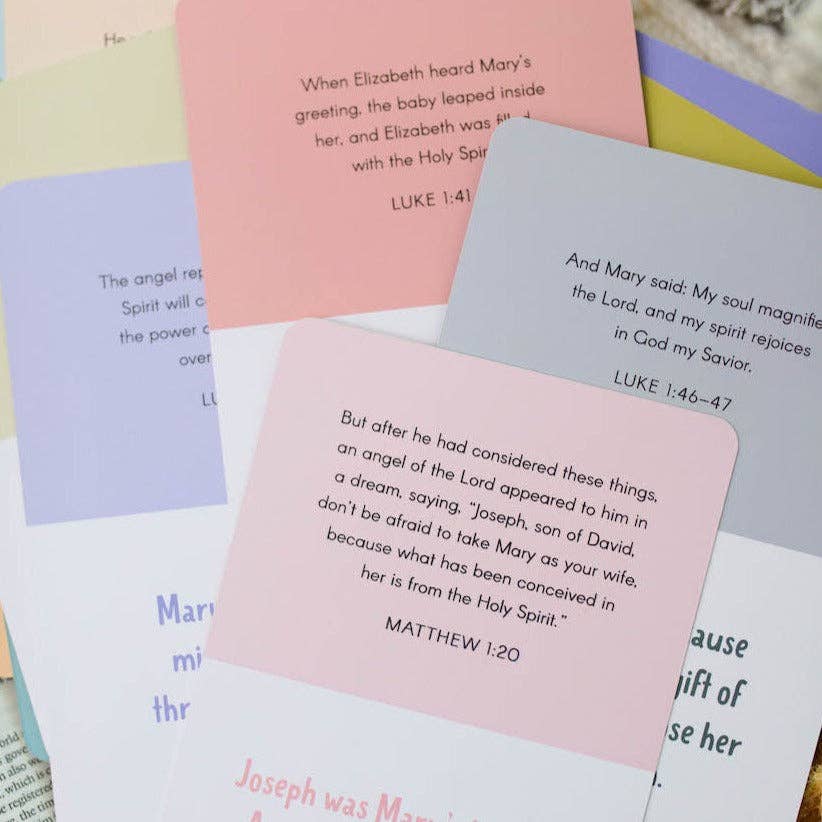 When Elizabeth heard Mary's
greeting, the baby leaped inside
her, and Elizabeth was
with the Holy
LUKE 1:41
The angel
Spirit will
the power
over
And Mary said: My soul
the Lord, and my spirit rejoices
in God my Savior.
LUKE 1:46–47
But after he had considered these things,
an angel of the Lord appeared to him in
a dream, saying, "Joseph, son of David,
don't be afraid to take Mary as your wife,
because what has been conceived in
her is from the Holy Spirit."
MATTHEW 1:20
Joseph was
gift of
her